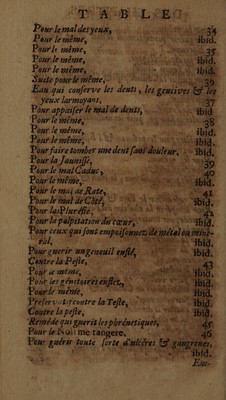 TABLE
Pour le mal des yeux, 34
Pour le même, ibid.
Pour le même, 35
Pour le même, ibid.
Pour le même, ibid.
Suite pour le même, 39
Eau qui conserve les dents, les gencives & les
yeux larmoyans, 37
Pour appaiser le mal de dents, ibid
Pour le même, 38
Pour le même, ibid.
Pour le même, ibid.
Pour faire tomber une dent sans douleur, ibid.
Pour la Jaunisse, 39
Pour le mal Caduc, 40
Pour le même, ibid.
Pour le mal de Rate, 41
Pour le mal de Côté, ibid.
Pour la Pluresie, 42
Pour la palpitation du cœur, ibid.
Pour ceux qui sont empoisonnez de métal ou miné-
ral, ibid.
Pour guerir un genouil enflé, ibid.
Contre la Peste, 43
Pour le même, ibid.
Pour les génitoires enflez, ibid.
Pour le même, ibid.
Preservatif contre la Peste, ibid.
Contre la peste, ibid.
Remède qui guerit les phrénetiques, 45
Pour le Noli me tangere, 46
Pour guérir toute sorte d'ulcéres & gangrenes,
ibid.